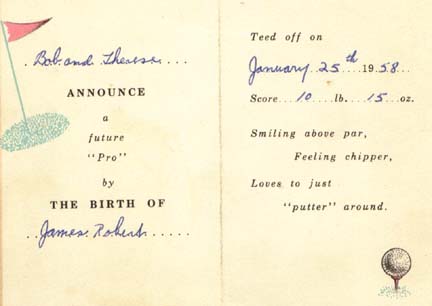 Bob and Theresa
ANNOUNCE
a
future
"Pro"
by
THE BIRTH OF
James Robert
Teed off on
January 25th 1958
Score 10 lb. 15 oz.
Smiling above par,
Feeling chipper,
Loves to just
"putter" around.